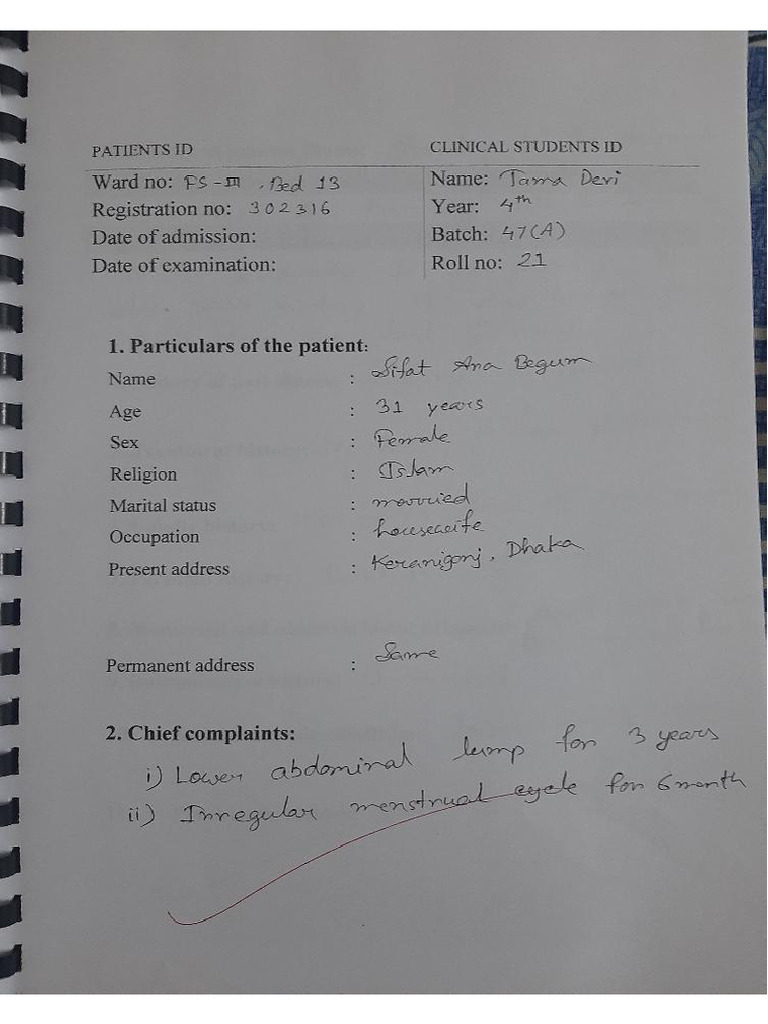 PATIENTS ID CLINICAL STUDENTS ID
Ward no: FS-III, Bed 13 Name: Tama Devi
Registration no: 302316 Year: 4th
Date of admission: Batch: 47(A)
Date of examination: Roll no: 21
1. Particulars of the patient:
Name : Sifat Ara Begum
Age : 31 years
Sex : Female
Religion : Islam
Marital status : married
Occupation : housewife
Present address : Keranigonj, Dhaka
Permanent address : Same
2. Chief complaints:
i) Lower abdominal lump for 3 years
ii) Irregular menstrual cycle for 6 month